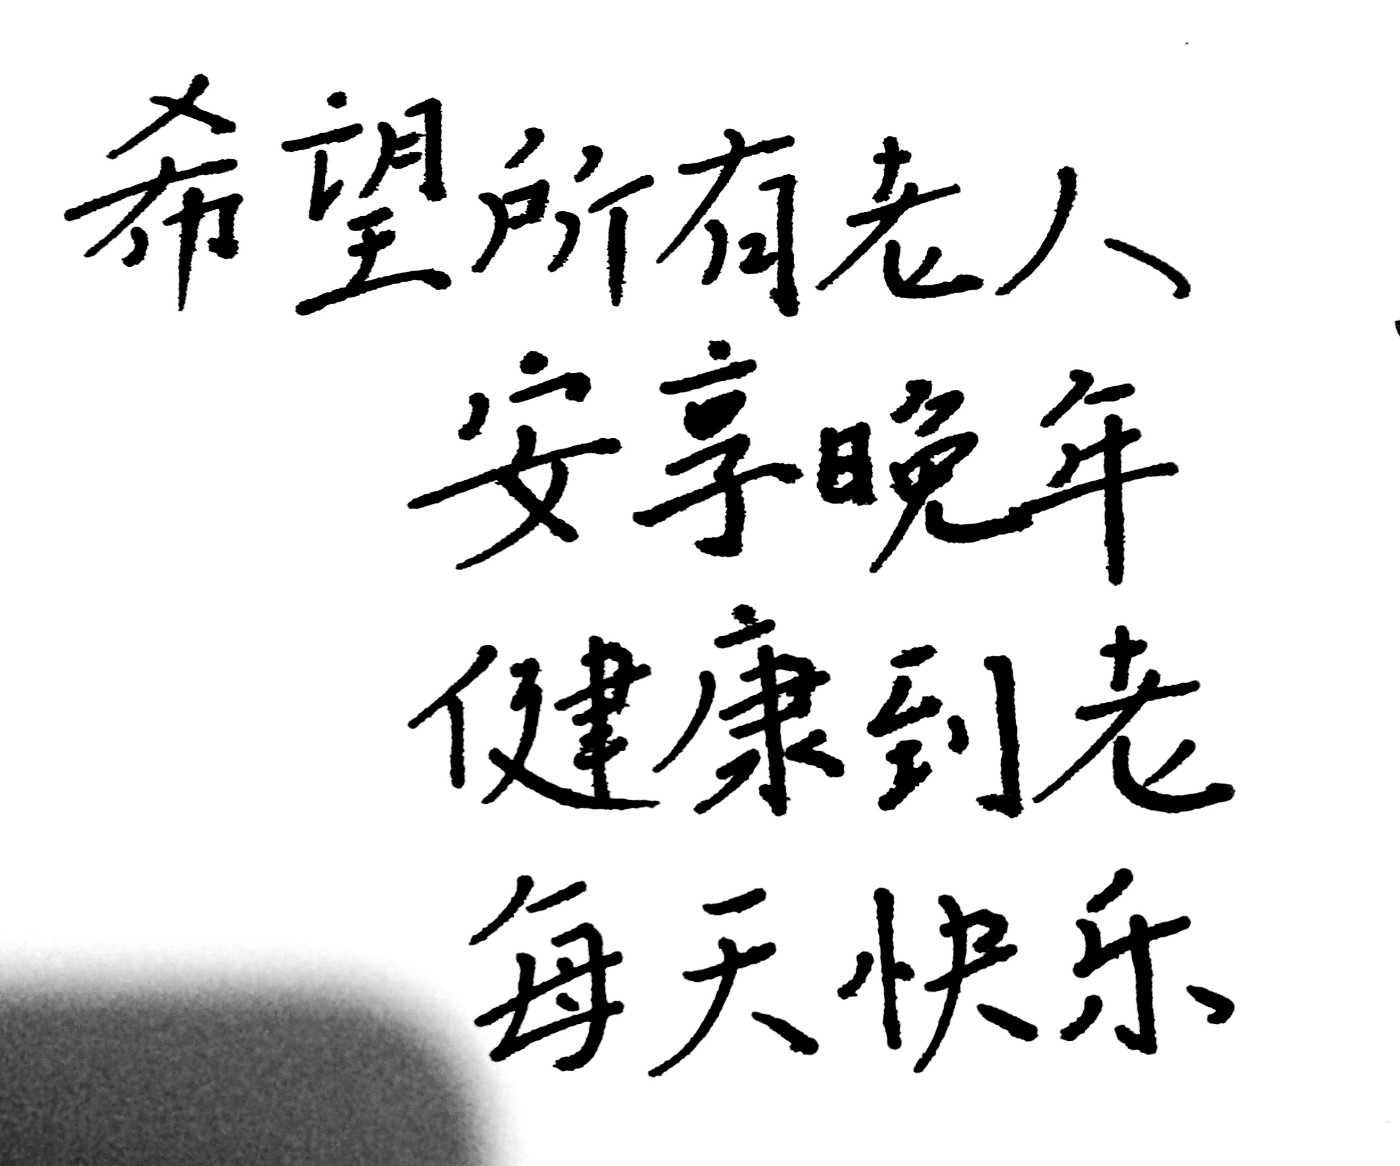 希望所有老人
安享晚年
健康到老
每天快乐